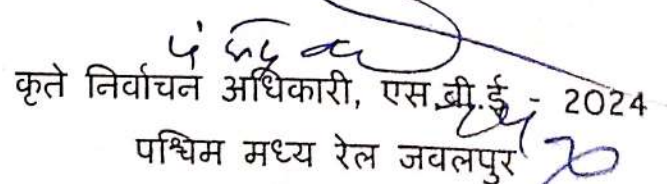 कृते निर्वाचन अधिकारी, एस.बी.ई. - 2024
पश्चिम मध्य रेल जबलपुर